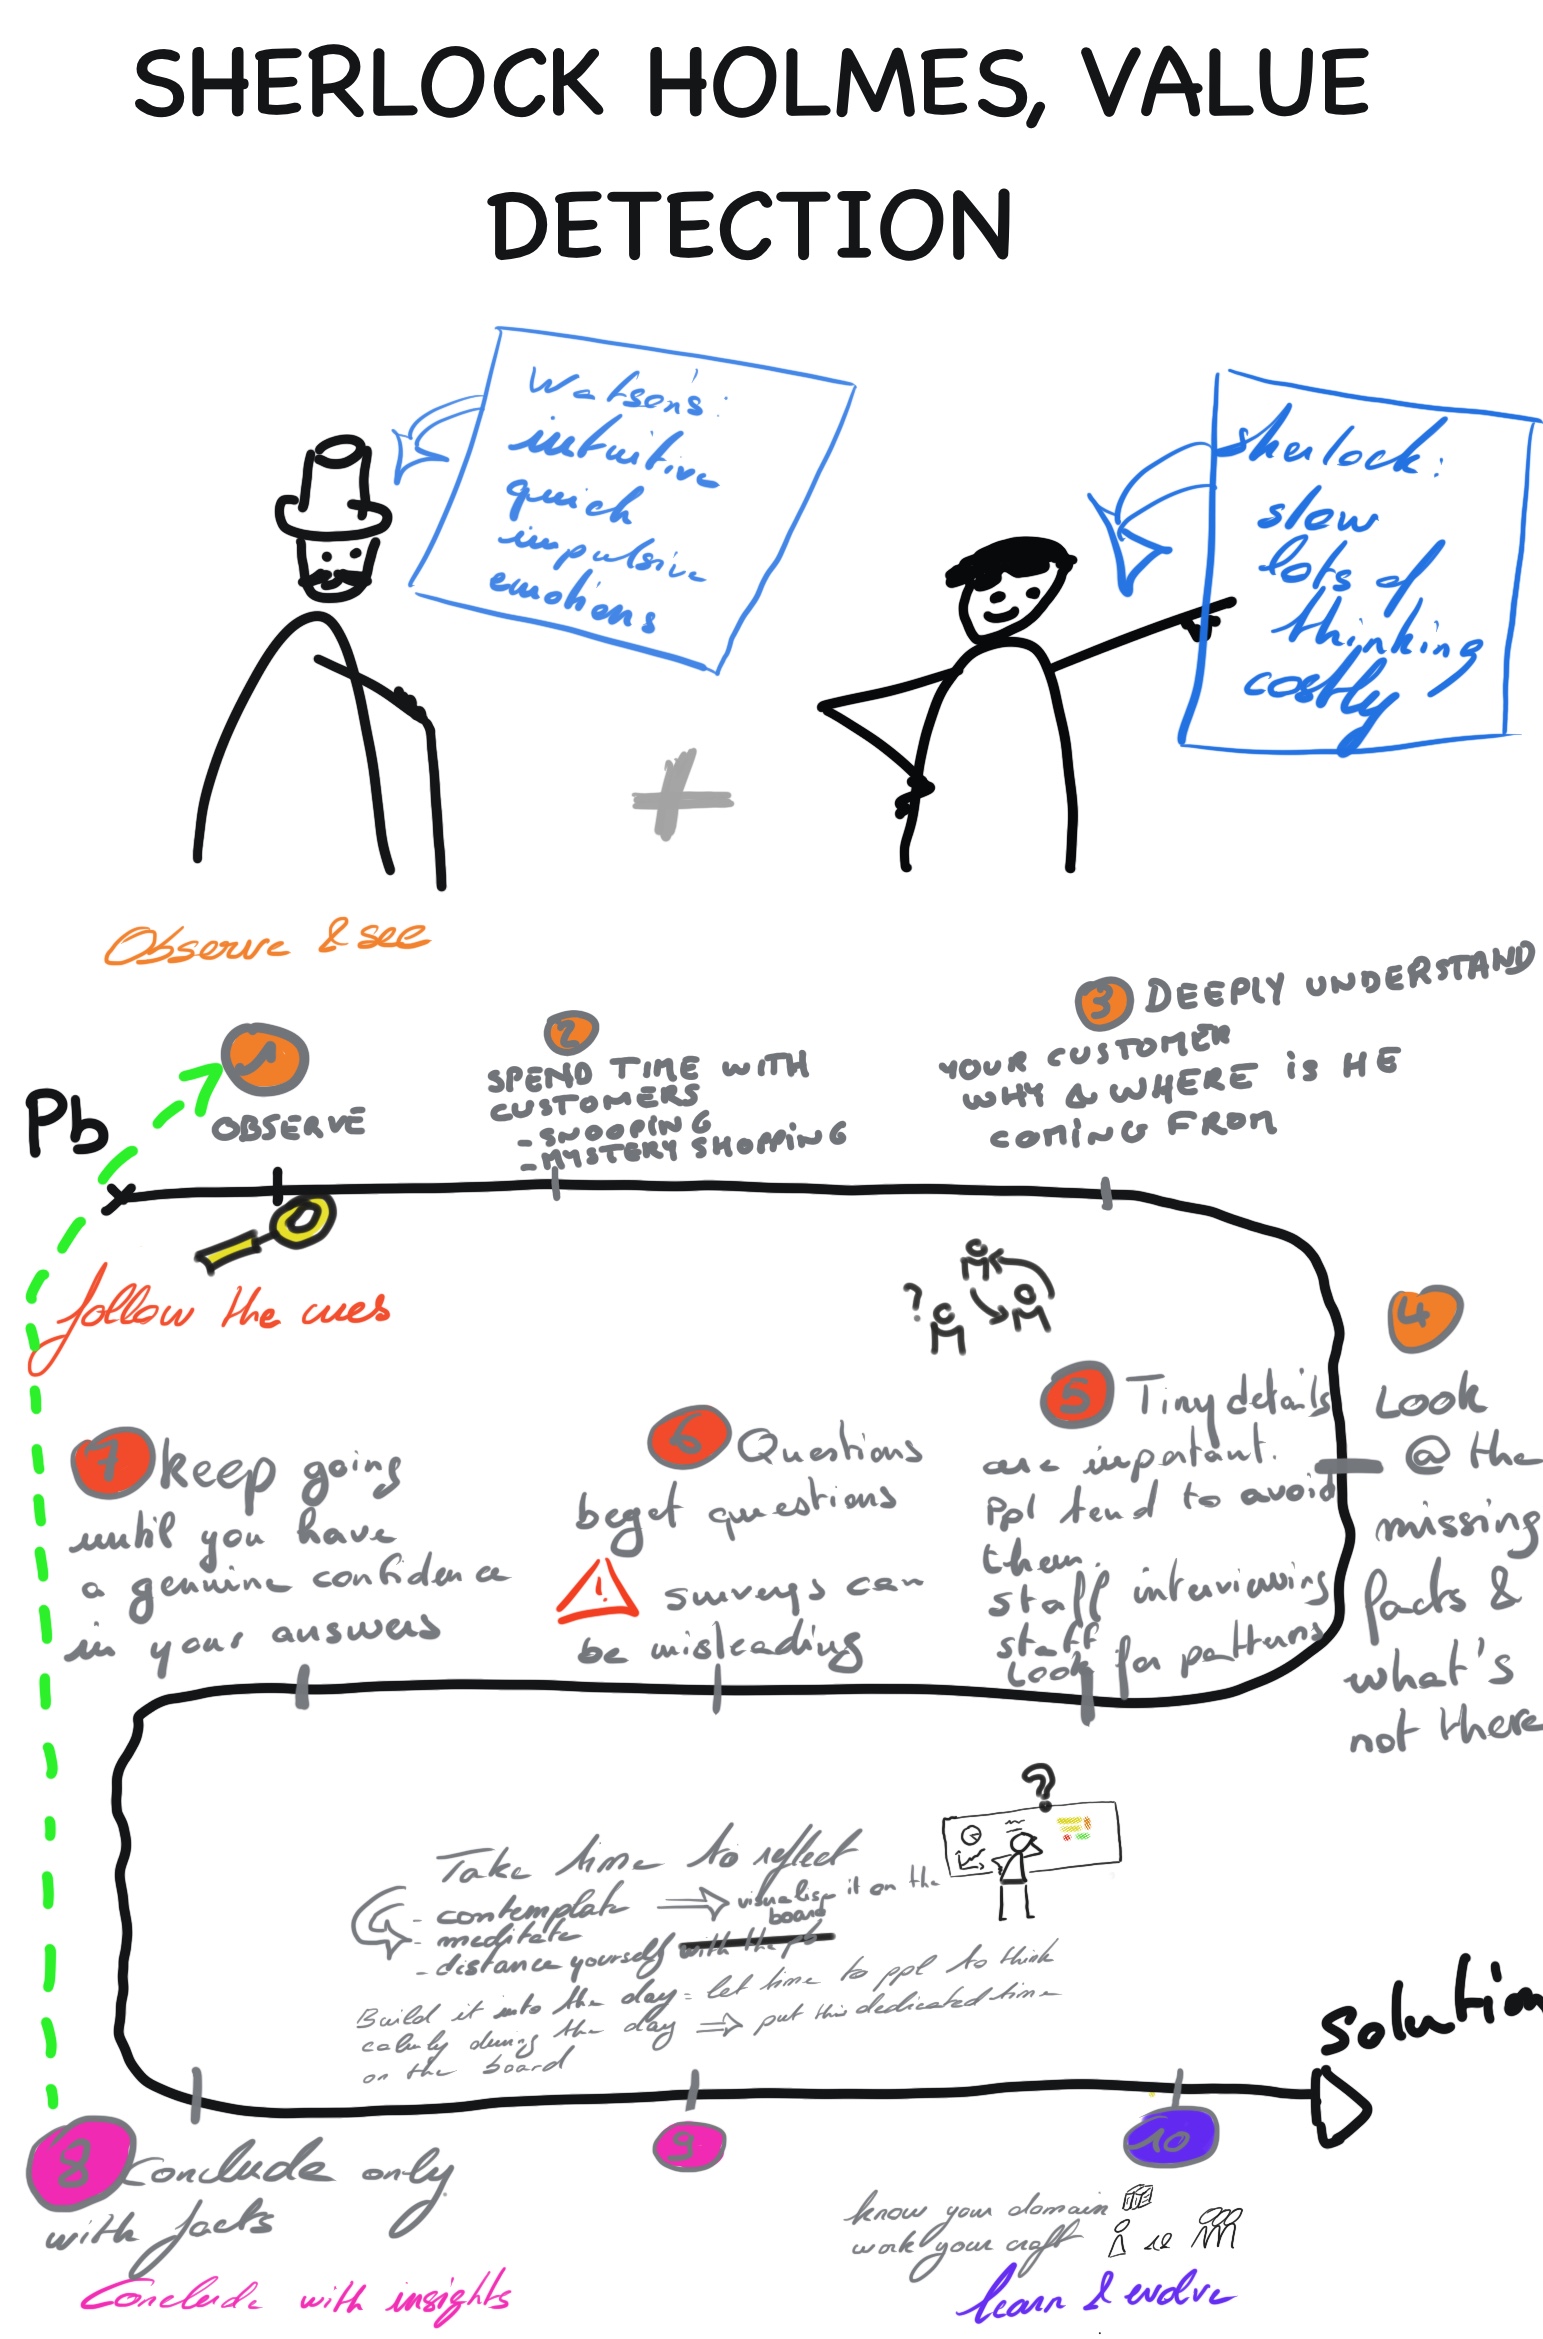 SHERLOCK HOLMES, VALUE
DETECTION
Watson's:
intuitive
quick
impulsive
emotions
sherlock:
slow
lots of
thinking
costly
Observe & see
Pb
1
OBSERVE
2
SPEND TIME WITH
CUSTOMERS
- SNOOPING
- MYSTERY SHOPPING
3 DEEPLY UNDERSTAND
YOUR CUSTOMER
WHY & WHERE is HE
COMING FROM
follow the cues
?
4
Look
@ the
missing
facts &
what's
not there
5 Tiny details
are important.
Ppl tend to avoid
them.
staff interviewing
staff
Look for patterns
6 Questions
beget questions
! surveys can
be misleading
7 keep going
until you have
a genuine confidence
in your answers
?
Take time to reflect
- contemplate ⇒ visualise it on the
board
- meditate
- distance yourself with the pb
Build it into the day = let time to ppl to think
calmly during the day ⇒ put this dedicated time
on the board
solution
8 Conclude only
with facts
Conclude with insights
9
10
know your domain
work your craft
learn & evolve